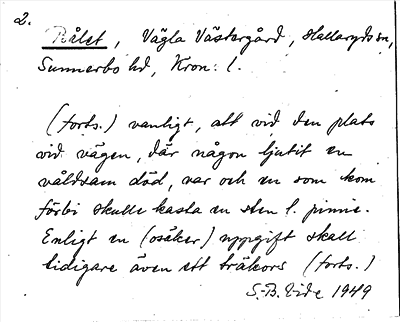 2.
Bålet, Vägla Västergård, Hallaryds sn,
Sunnerbo hd, Kron. l.
(forts.) vanligt, att vid den plats
vid vägen, där någon ljutit en
våldsam död, var och en som kom
förbi skulle kasta en sten l. pinne.
Enligt en (osäker) uppgift skall
tidigare även ett träkors (forts.)
S.-B. Vide 1949